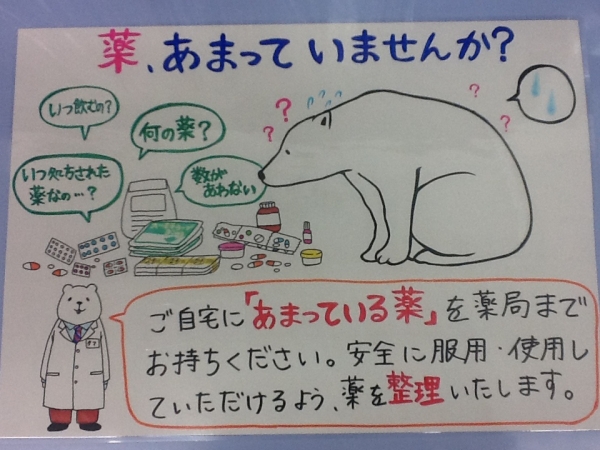 薬、あまっていませんか?
いつ飲むの?
何の薬?
いつ処方された
薬なの…?
数が
あわない
ご自宅に「あまっている薬」を薬局まで
お持ちください。安全に服用・使用し
ていただけるよう、薬を整理いたします。